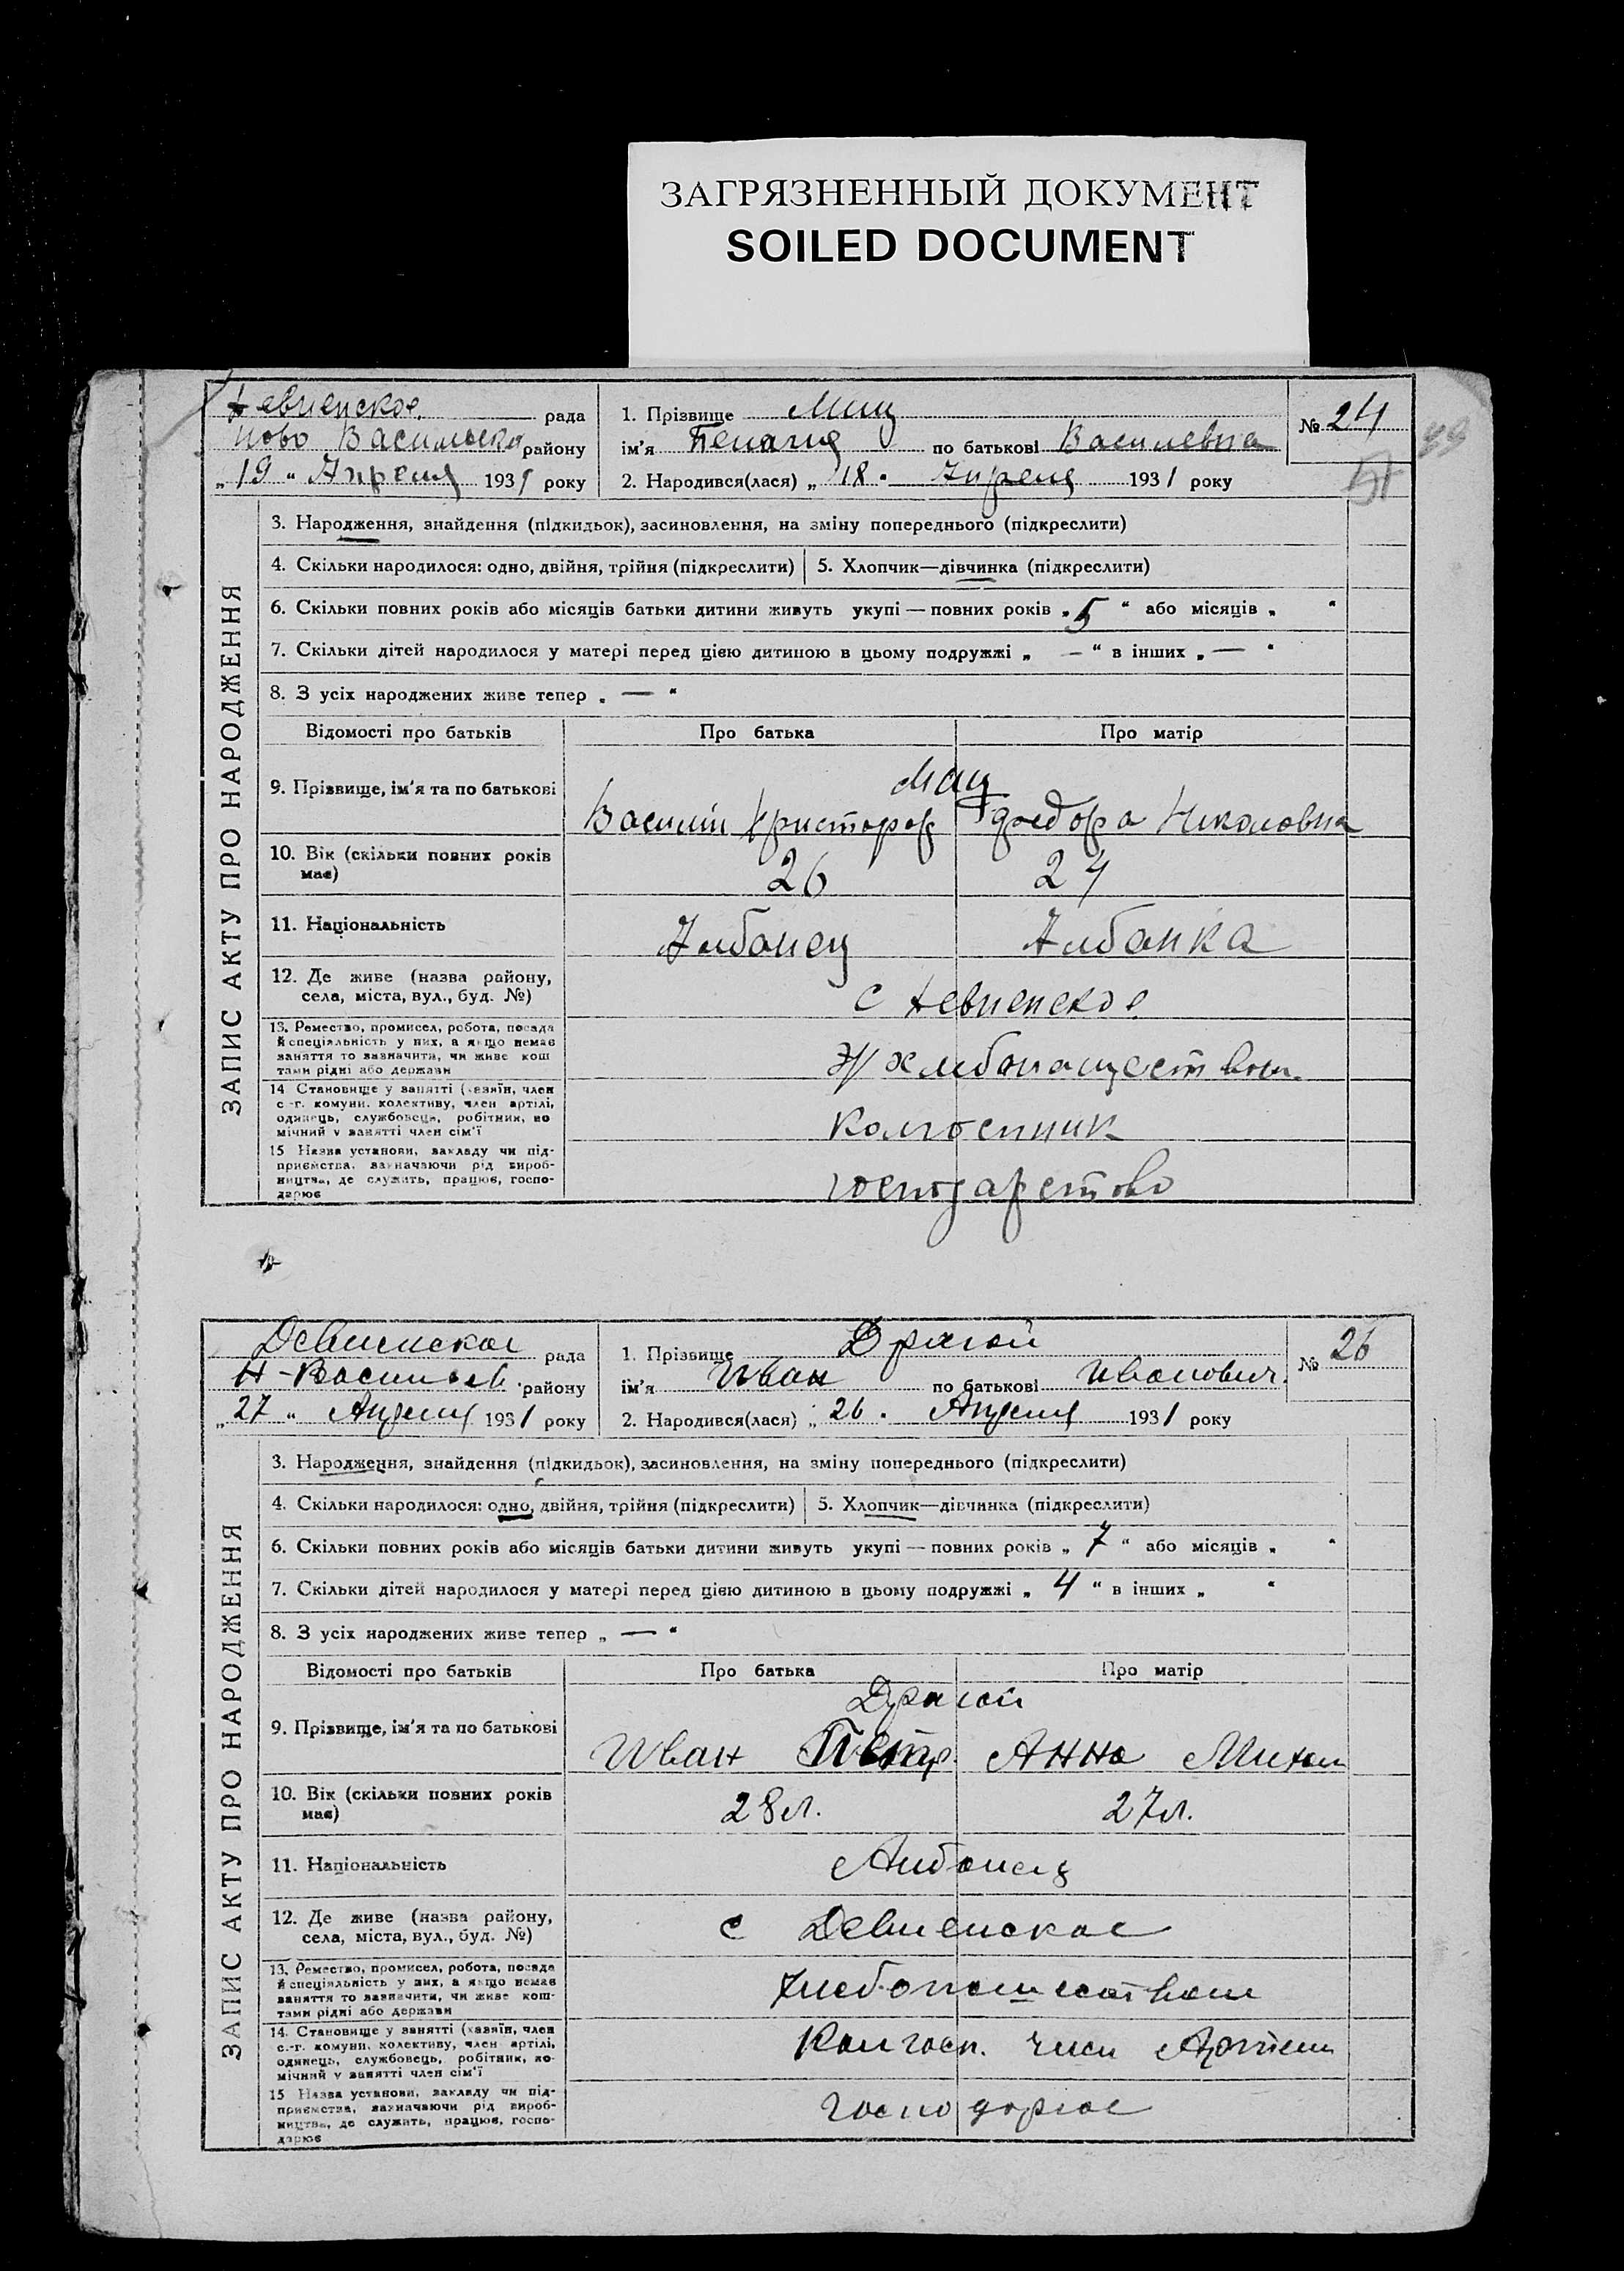 ЗАГРЯЗНЕННЫЙ ДОКУМЕНТ
SOILED DOCUMENT
Девненское рада
Ново Васильеско району
„ 19 “ Апреля 1931 року
1. Прізвище Мац
ім'я Пелагия по батькові Василевна
2. Народився(лася) „ 18 “ Апреля 1931 року
№ 24
ЗАПИС АКТУ ПРО НАРОДЖЕННЯ
3. Народження, знайдення (підкидьок), засиновлення, на зміну попереднього (підкреслити)
4. Скільки народилося: одно, двійня, трійня (підкреслити) 5. Хлопчик—дівчинка (підкреслити)
6. Скільки повних років або місяців батьки дитини живуть укупі — повних років „ 5 “ або місяців „ “
7. Скільки дітей народилося у матері перед цією дитиною в цьому подружжі „ — “ в інших „ — “
8. З усіх народжених живе тепер „ — “
Відомості про батьків Про батька Про матір
9. Прізвище, ім'я та по батькові
Мац
Василий Христофор Федора Николовна
10. Вік (скільки повних років
має)
26 24
11. Національність
Албанец Албанка
12. Де живе (назва району,
села, міста, вул., буд. №)
с Девненское
13. Ремество, промисел, робота, посада
й спеціяльність у них, а якщо немає
заняття то зазначити, чи живе кош
тами рідні або держави
хлебопашеством
14 Становище у занятті (хазяїн, член
с.-г. комуни, колективу, член артілі,
одинець, службовець, робітник, по
мічний у занятті член сім'ї
Колгоспник
15 Назва установи, закладу чи під-
приємства, зазначаючи рід вироб-
ництва, де служить, працює, госпо-
дарює
господарство
Девненское рада
Н-Васильев. району
„ 27 “ Апреля 1931 року
1. Прізвище Драгой
ім'я Иван по батькові Иванович.
2. Народився(лася) „ 26 “ Апреля 1931 року
№ 26
ЗАПИС АКТУ ПРО НАРОДЖЕННЯ
3. Народження, знайдення (підкидьок), засиновлення, на зміну попереднього (підкреслити)
4. Скільки народилося: одно, двійня, трійня (підкреслити) 5. Хлопчик—дівчинка (підкреслити)
6. Скільки повних років або місяців батьки дитини живуть укупі — повних років „ 7 “ або місяців „ “
7. Скільки дітей народилося у матері перед цією дитиною в цьому подружжі „ 4 “ в інших „ “
8. З усіх народжених живе тепер „ — “
Відомості про батьків Про батька Про матір
9. Прізвище, ім'я та по батькові
Драгой
Иван Петр. Анна Михай
10. Вік (скільки повних років
має)
28 л. 27 л.
11. Національність
Албанец
12. Де живе (назва району,
села, міста, вул., буд. №)
с Девненское
13. Ремество, промисел, робота, посада
й спеціяльність у них, а якщо немає
заняття то зазначити, чи живе кош-
тами рідні або держави
хлебопашеством
14. Становище у занятті (хазяїн, член
с.-г. комуни, колективу, член артілі,
одинець, службовець, робітник, по-
мічний у занятті член сім'ї
Колгосп. член Артели
15 Назва установи, закладу чи під-
приємства, зазначаючи рід вироб-
ництва, де служить, працює, госпо-
дарює
господарює